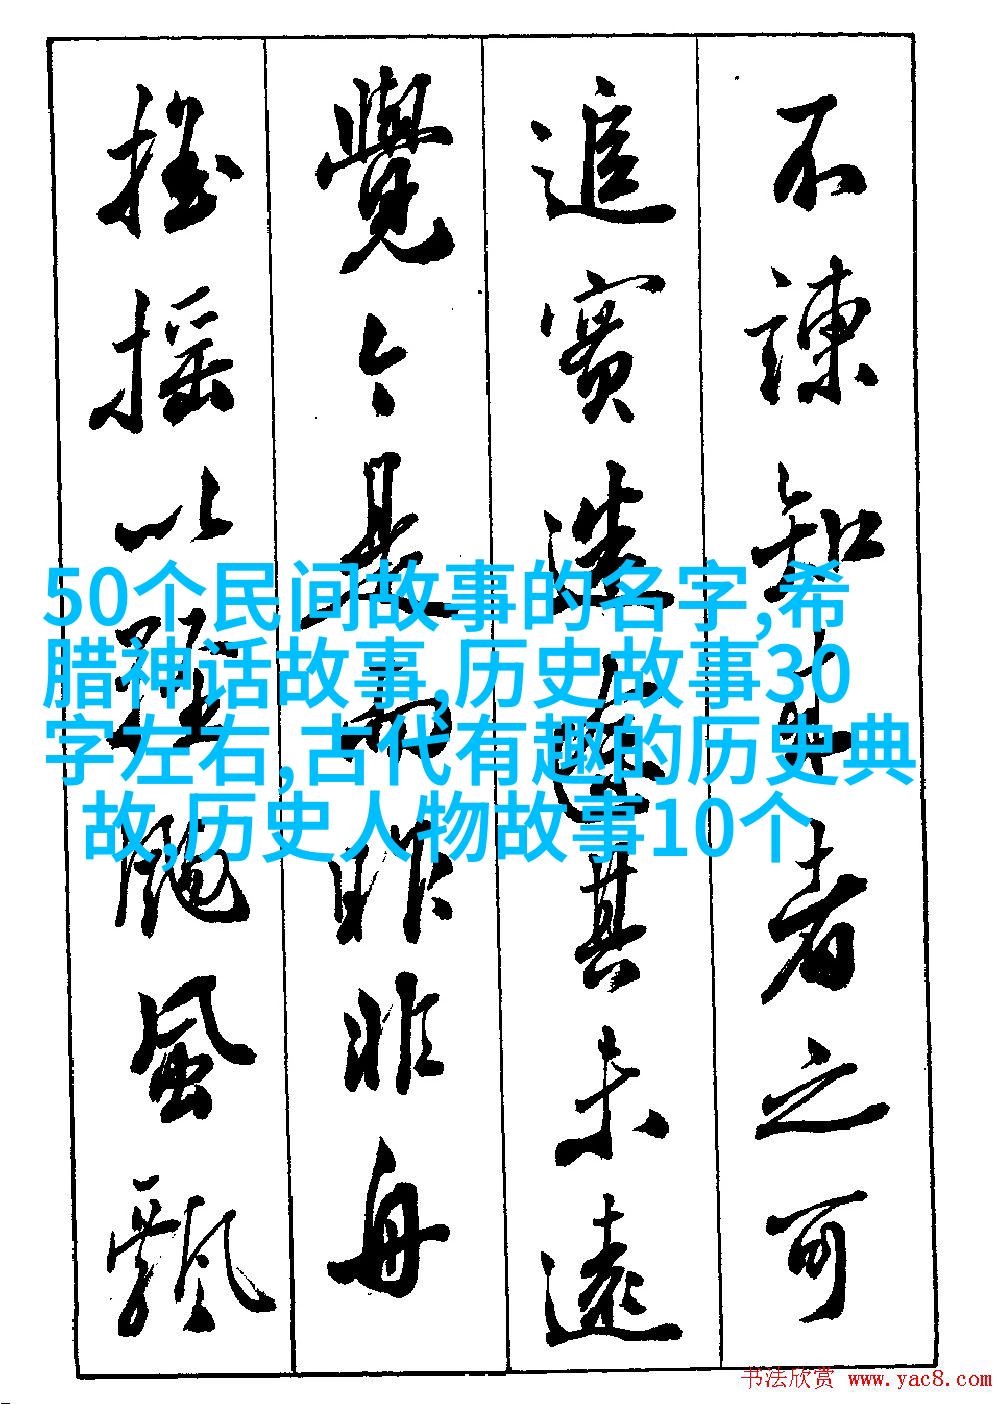 不諫知来者之可
追實迷途其未遠
覺今是而昨非舟
搖搖以輕颺風飄
50个民间故事的名字,希
腊神话故事,历史故事30
字左右,古代有趣的历史典
故,历史人物故事10个
书法欣赏 www.yac8.com